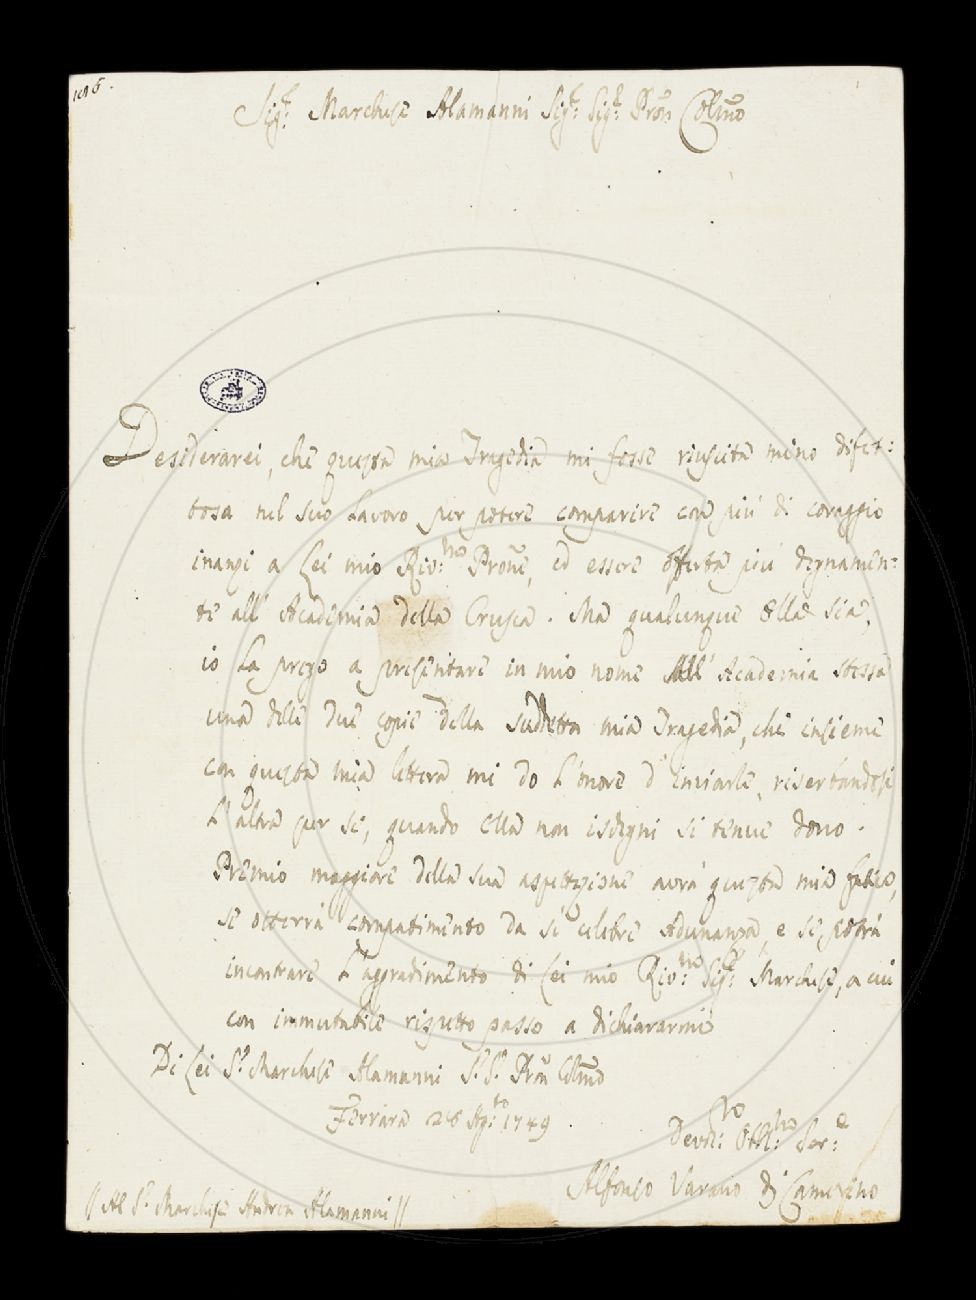 Sig.r Marchese Alamanni Sig.r Sig.r Pron Colmo
Desiderarei, che questa mia Tragedia mi fosse riuscita meno difet:
tosa nel suo Lavoro per potere comparire con più di coraggio
inanzi a Lei mio Riv:mo Prone, ed essere offerta più degnamen:
te all' Academia della Crusca. Ma qualunque Ella sia,
io La prego a presentare in mio nome All' Academia stessa
una delle due copie della suddetta mia Tragedia, che insieme
con questa mia lettera mi do L'onore d'inviarle, riserbandosi
L'altra per se, quando Ella non isdegni sì tenue dono.
Premio maggiore della sua aspettazione avrà questa mia fatica,
se otterrà compatimento da sì celebre Adunanza, e se potrà
incontrare L'aggradimento di Lei mio Riv:mo Sig:re Marchese, a cui
con immutabile rispetto passo a dichiararmi
Di Lei S.r Marchese Alamanni S.r S.r Pron Colmo
Ferrara 28 Ag:to 1749
Devot:mo Obbl:mo Ser:e
Alfonso Varano di Camerino
// Al S.r Marchese Andrea Alamanni //